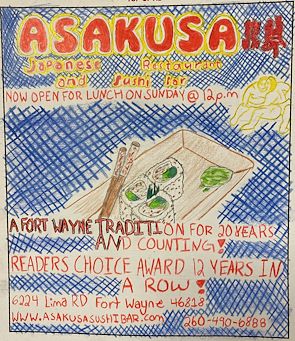 ASAKUSA
Japanese Restaurant
and Sushi Bar
NOW OPEN FOR LUNCH ON SUNDAY @ 12p.m
A FORT WAYNE TRADITION FOR 20 YEARS
AND COUNTING!
READERS CHOICE AWARD 12 YEARS IN
A ROW!
6224 Lima RD Fort Wayne 46818
WWW.ASAKUSASUSHIBAR.com 260-490-6888